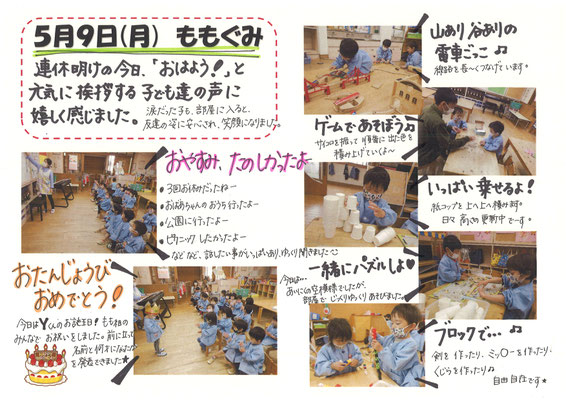 5月9日(月) ももぐみ
連休明けの今日、「おはよう!」と
元気に挨拶する子ども達の声に
嬉しく感じました。
涙だった子も、部屋に入ると、
友達の姿に安心され、笑顔になりました。
おやすみ、たのしかったよ
・3回お休みだったねー
・おばあちゃんのおうち行ったよー
・公園に行ったよー
・ピクニックしたかったよー
などなど、話したい事がいっぱいあり、ゆっくり聞きました
おたんじょうび
おめでとう!
今日はYくんのお誕生日!もも組の
みんなでお祝いをしました。前に立って
名前と何才になったか
を発表できました★
山あり谷ありの
電車ごっこ♫
線路を長〜くつなげています。
ゲームであそぼう♪
サイコロを振って順番に出た色を
積み上げていくよ〜
いっぱい乗せるよ!
紙コップを上へ上へ積み
日々高さ更新中でーす。
一緒にパズルしよ♥
今日は…
あいにくの空模様でしたが、
部屋でじっくりゆっくりあそびました。
ブロックで…♫
剣を作ったり、ミッ〇ーを作ったり、
くじらを作ったり♪
自由自在です★